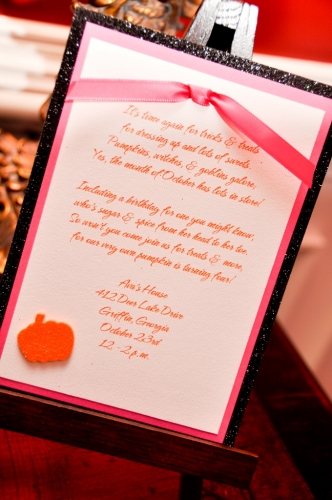 It's time again for tricks & treats
for dressing up and lots of sweets.
Pumpkins, witches, & goblins galore,
Yes, the month of October has lots in store!
Including a birthday for one you might know,
who's sugar & spice from her head to her toe.
So won't you come join us for treats & more,
for our very own pumpkin is turning four!
Ava's House
412 Deer Lake Drive
Griffin, Georgia
October 23rd
12 - 2 p.m.